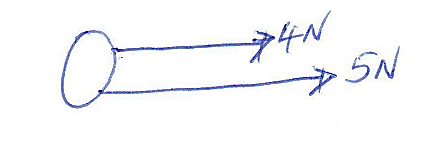 4N
5N